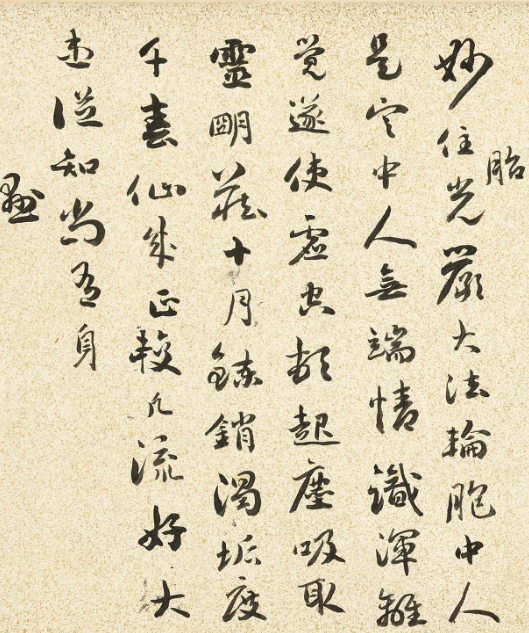 妙住光嚴大法輪胞中人
胎
是空中人無端情識渾離
覺遂使虛空頓起塵吸取
靈明藏十月鍊銷濁垢度
千春仙成正較凡流好大
患從知尚有身